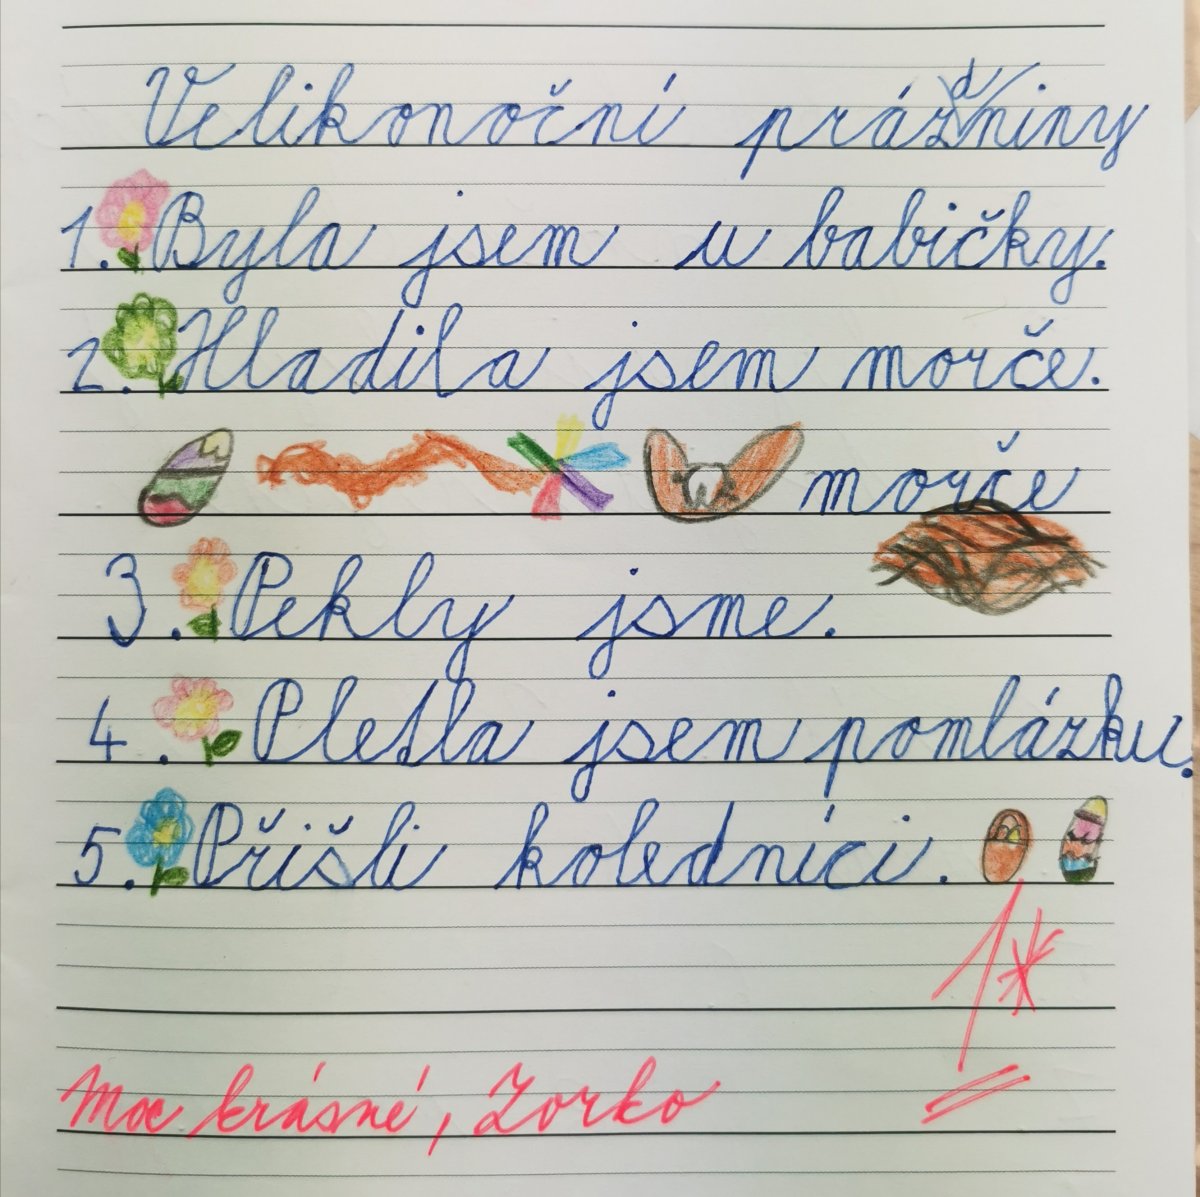 Velikonoční prázdniny
1. Byla jsem u babičky.
2. Hladila jsem morče.
morče
3. Pekly jsme.
4. Pletla jsem pomlázku.
5. Přišli koledníci.
1*
Moc krásné, Zorko